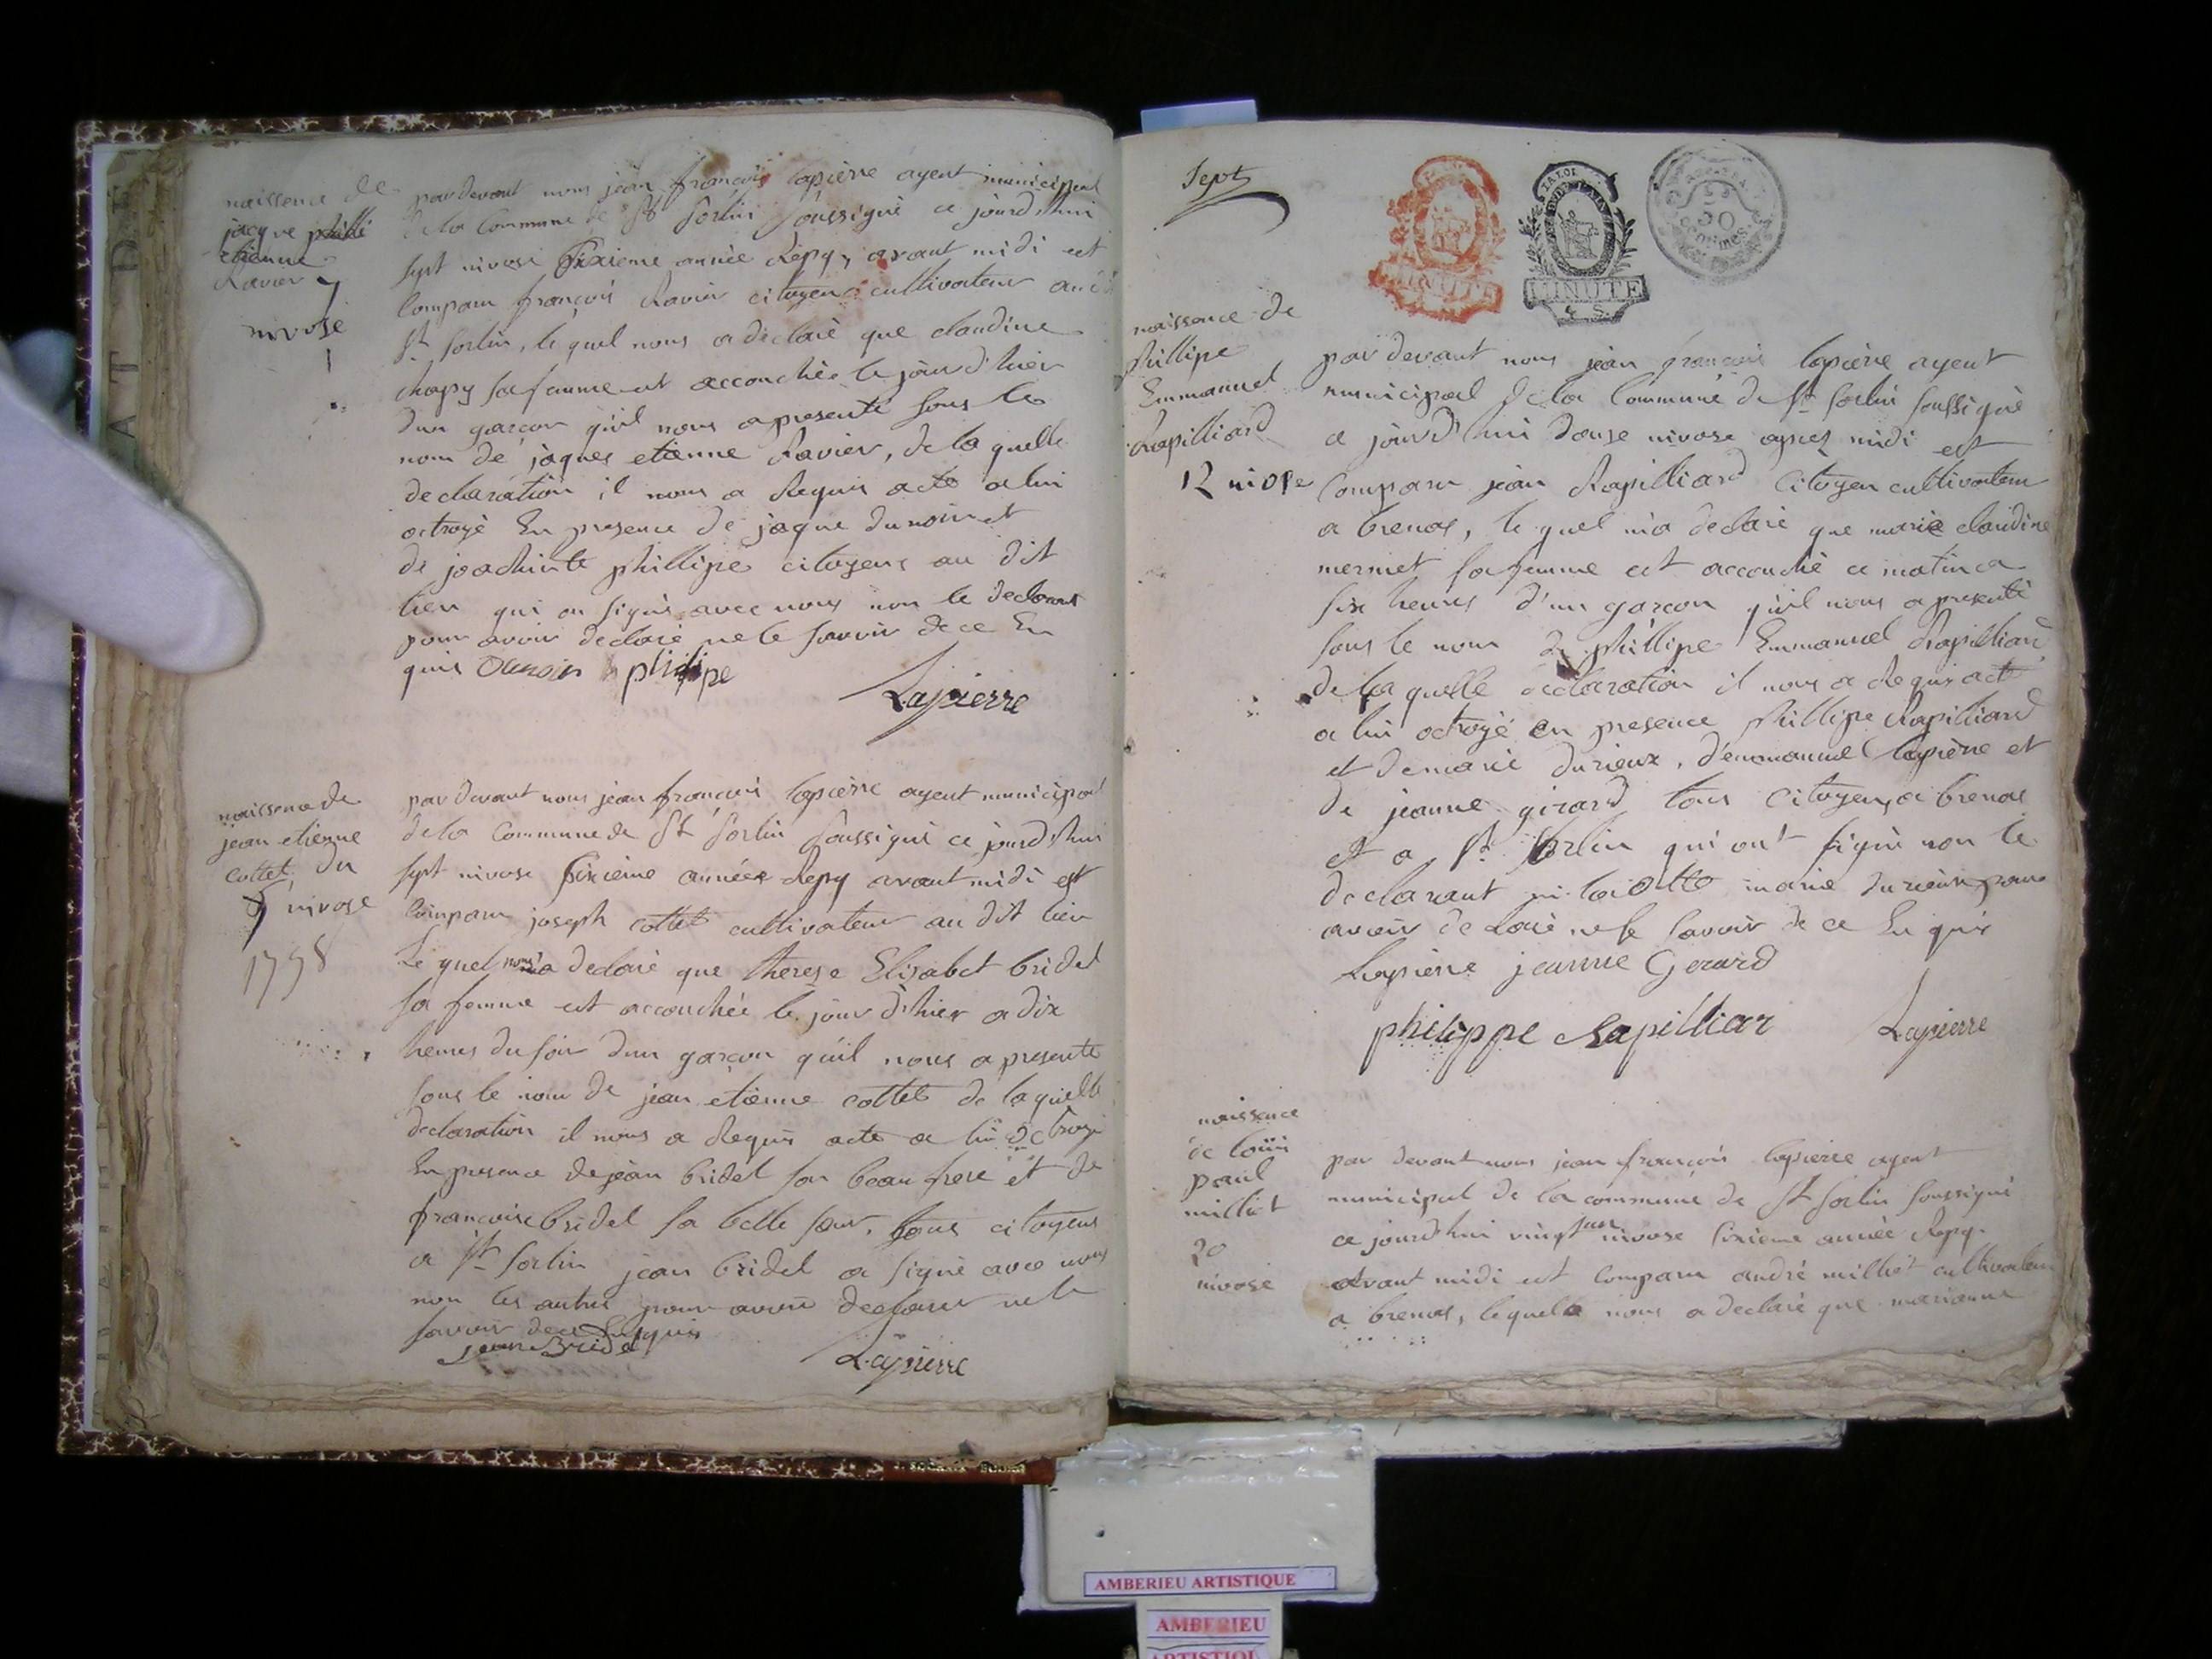 naissence de
jacque
etienne
Ravier 7
nivose
par devant nous jean françois lapierre agent municipal
de la commune de St Sorlin soussigné ce jourd'hui
sept nivose sixieme année Repq, avant midi est
comparu françois Ravier citoyen cultivateur au dit
St Sorlin, le quel nous a declaré que claudine
chapy sa femme est accouchée le jour d'hier
d'un garcon qu'il nous a presenté sous le
nom de jaques etienne Ravier, de la quelle
declaration il nous a Requis acte a lui
octroyé En presence de jaque dunoir et
de joachinte phillipe citoyens au dit
lieu qui on signé avec nous non le declarant
pour avoir declaré ne le savoir de ce En
quis Dunoir philipe
Lapierre
naissence de
jean etienne
cottet du
7 nivose
1798
par devant nous jean françois lapierre agent municipal
de la commune de St Sorlin soussigné ce jourd'hui
sept nivose sixieme année Repq avant midi est
comparu joseph cottet cultivateur au dit lieu
Le quel nous a declaré que therese Elisabet bridel
sa femme est accouchée le jour d'hier a dix
heures du soir d'un garcon qu'il nous a presente
sous le nom de jean etienne cottet de laquelle
declaration il nous a Requis acte a lui octroyé
En presence de jean bridel son beau frere et de
francoise bridel sa belle sœur, tous citoyens
a St Sorlin jean bridel a signé avec nous
non les autres pour avoir declarer ne le
savoir de ce Enquis
jean Bridel
Lapierre
Sept
LA LOI
MINUTE
LA LOI
MINUTE
50
centimes
naissence de
phillipe
Emmanuel
Rapilliard
12 nivose
par devant nous jean françois lapierre agent
municipal de la commune de St Sorlin soussigné
ce jourd'hui douse nivose apres midi est
comparu jean Rapilliard Citoyen cultivateur
a brenas, le quel m'a declaré que marie claudine
mermet sa femme est accouché ce matin a
six heures d'un garcon qu'il nous a presenté
sous le nom de phillipe Emmanuel Rapilliard
de la quelle declaration il nous a Requis acte
a lui octroyé en presence phillipe Rapilliard
et de marie durieux, d'emmanuel lapierre et
de jeanne girard tous Citoyens a brenas
et a St Sorlin qui ont signé non le
declarant ni marie durieux pour
avoir declaré ne le savoir de ce En quis
Lapierre jeanne Gerard
philippe Rapilliar Lapierre
naissence
de louis
paul
milliet
20
nivose
par devant nous jean françois lapierre agent
municipal de la commune de St Sorlin soussigné
ce jourd'hui vingt un nivose sixieme année Repq.
avant midi est comparu andré milliet cultivateur
a brenas, lequel nous a declaré que marianne
AMBERIEU ARTISTIQUE
AMBERIEU
ARTISTIQUE